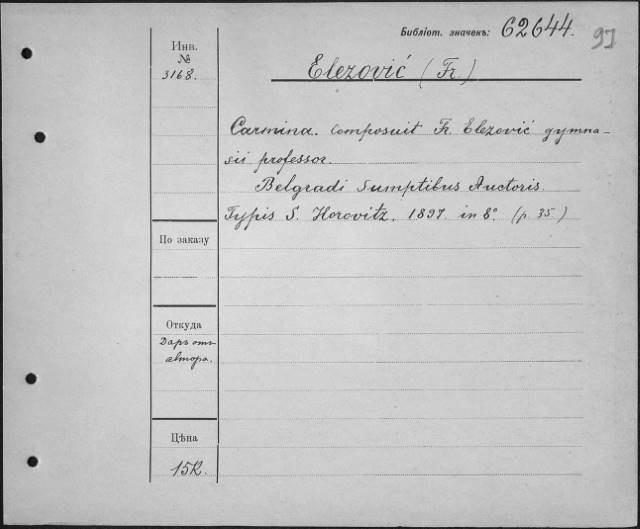 Библіот. значекъ: 62644.
97
Инв.
№
3168.
Elezović (Fr.)
Carmina. Composuit Fr. Elezović gymna-
sii professor.
Belgradi Sumptibus Auctoris.
Typis S. Horovitz. 1897. in 8º (p. 35)
По заказу
Откуда
Даръ отъ
автора.
Цѣна
15К.